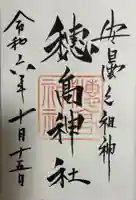 安曇之祖神
穂高神社
令和六年十月十五日